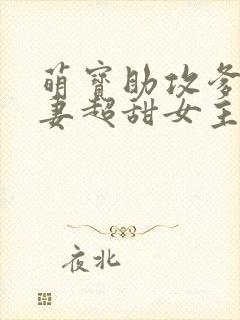 萌宝助攻爹
妻超甜女主
夜北